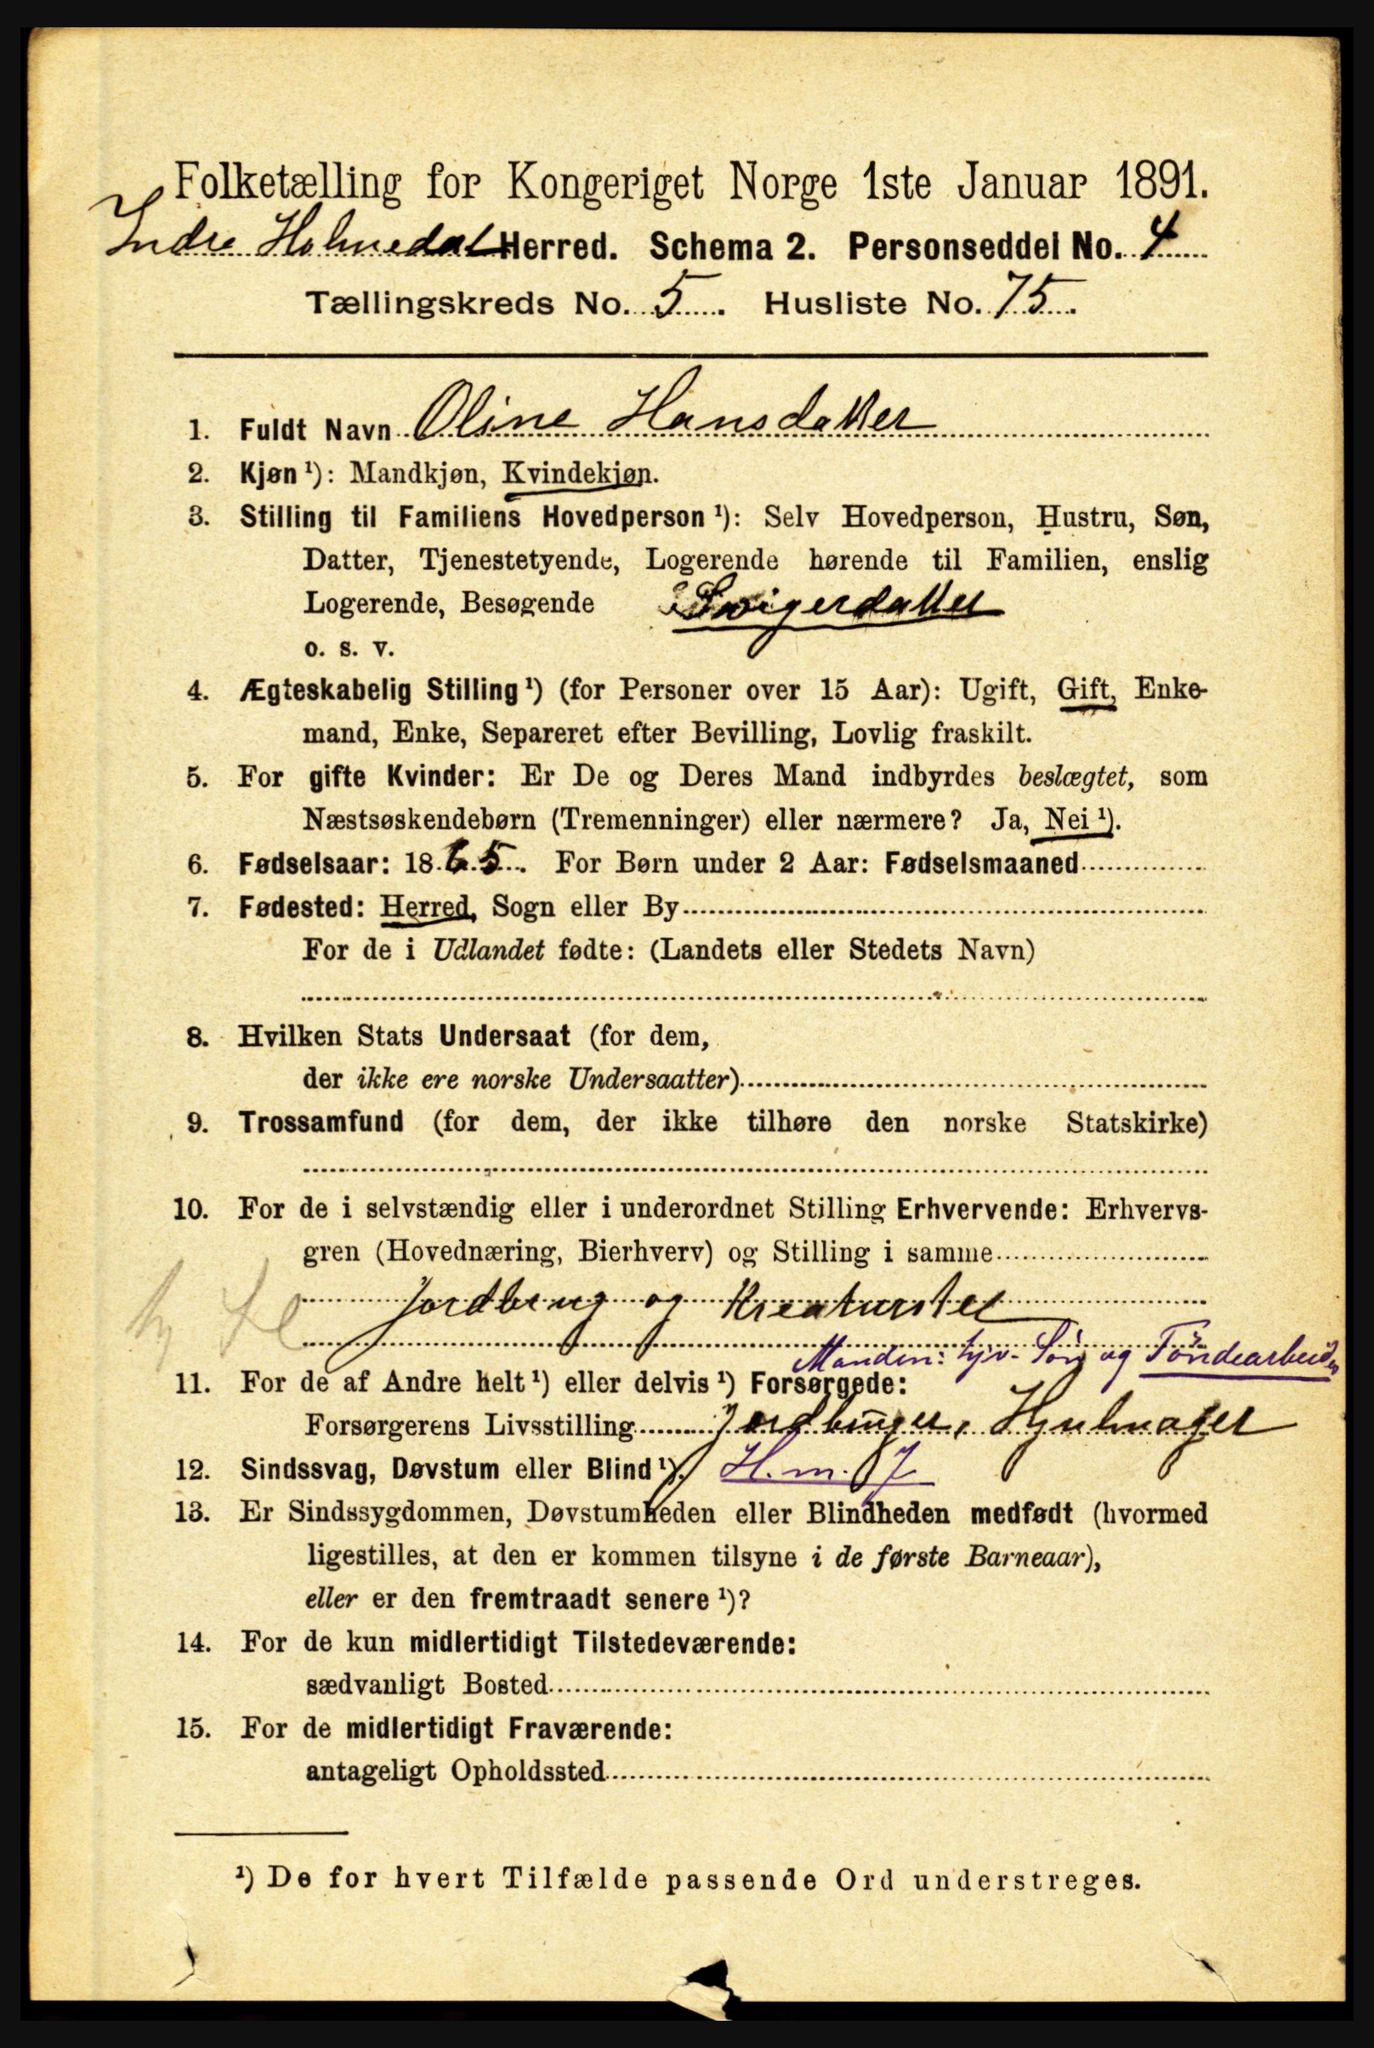 Folketælling for Kongeriget Norge 1ste Januar 1891.
Indre Holmedal Herred. Schema 2. Personseddel No. 4
Tællingskreds No. 5. Husliste No. 75.
1. Fuldt Navn Oline Hansdatter
2. Kjøn ¹): Mandkjøn, Kvindekjøn.
3. Stilling til Familiens Hovedperson ¹): Selv Hovedperson, Hustru, Søn,
Datter, Tjenestetyende, Logerende hørende til Familien, enslig
Logerende, Besøgende Svigerdatter
o. s. v.
4. Ægteskabelig Stilling ¹) (for Personer over 15 Aar): Ugift, Gift, Enke-
mand, Enke, Separeret efter Bevilling, Lovlig fraskilt.
5. For gifte Kvinder: Er De og Deres Mand indbyrdes beslægtet, som
Næstsøskendebørn (Tremenninger) eller nærmere? Ja, Nei ¹).
6. Fødselsaar: 1865. For Børn under 2 Aar: Fødselsmaaned
7. Fødested: Herred, Sogn eller By
For de i Udlandet fødte: (Landets eller Stedets Navn)
8. Hvilken Stats Undersaat (for dem,
der ikke ere norske Undersaatter)
9. Trossamfund (for dem, der ikke tilhøre den norske Statskirke)
10. For de i selvstændig eller i underordnet Stilling Erhvervende: Erhvervs-
gren (Hovednæring, Bierhverv) og Stilling i samme
Jordbrug og Kreaturstel
Manden: hjv. Søn og Töndearbeider
11. For de af Andre helt ¹) eller delvis ¹) Forsørgede:
Forsørgerens Livsstilling Jordbruger, Hjulmager
12. Sindssvag, Døvstum eller Blind ¹). H.m. 7
13. Er Sindssygdommen, Døvstumheden eller Blindheden medfødt (hvormed
ligestilles, at den er kommen tilsyne i de første Barneaar),
eller er den fremtraadt senere ¹)?
14. For de kun midlertidigt Tilstedeværende:
sædvanligt Bosted
15. For de midlertidigt Fraværende:
antageligt Opholdssted
¹) De for hvert Tilfælde passende Ord understreges.